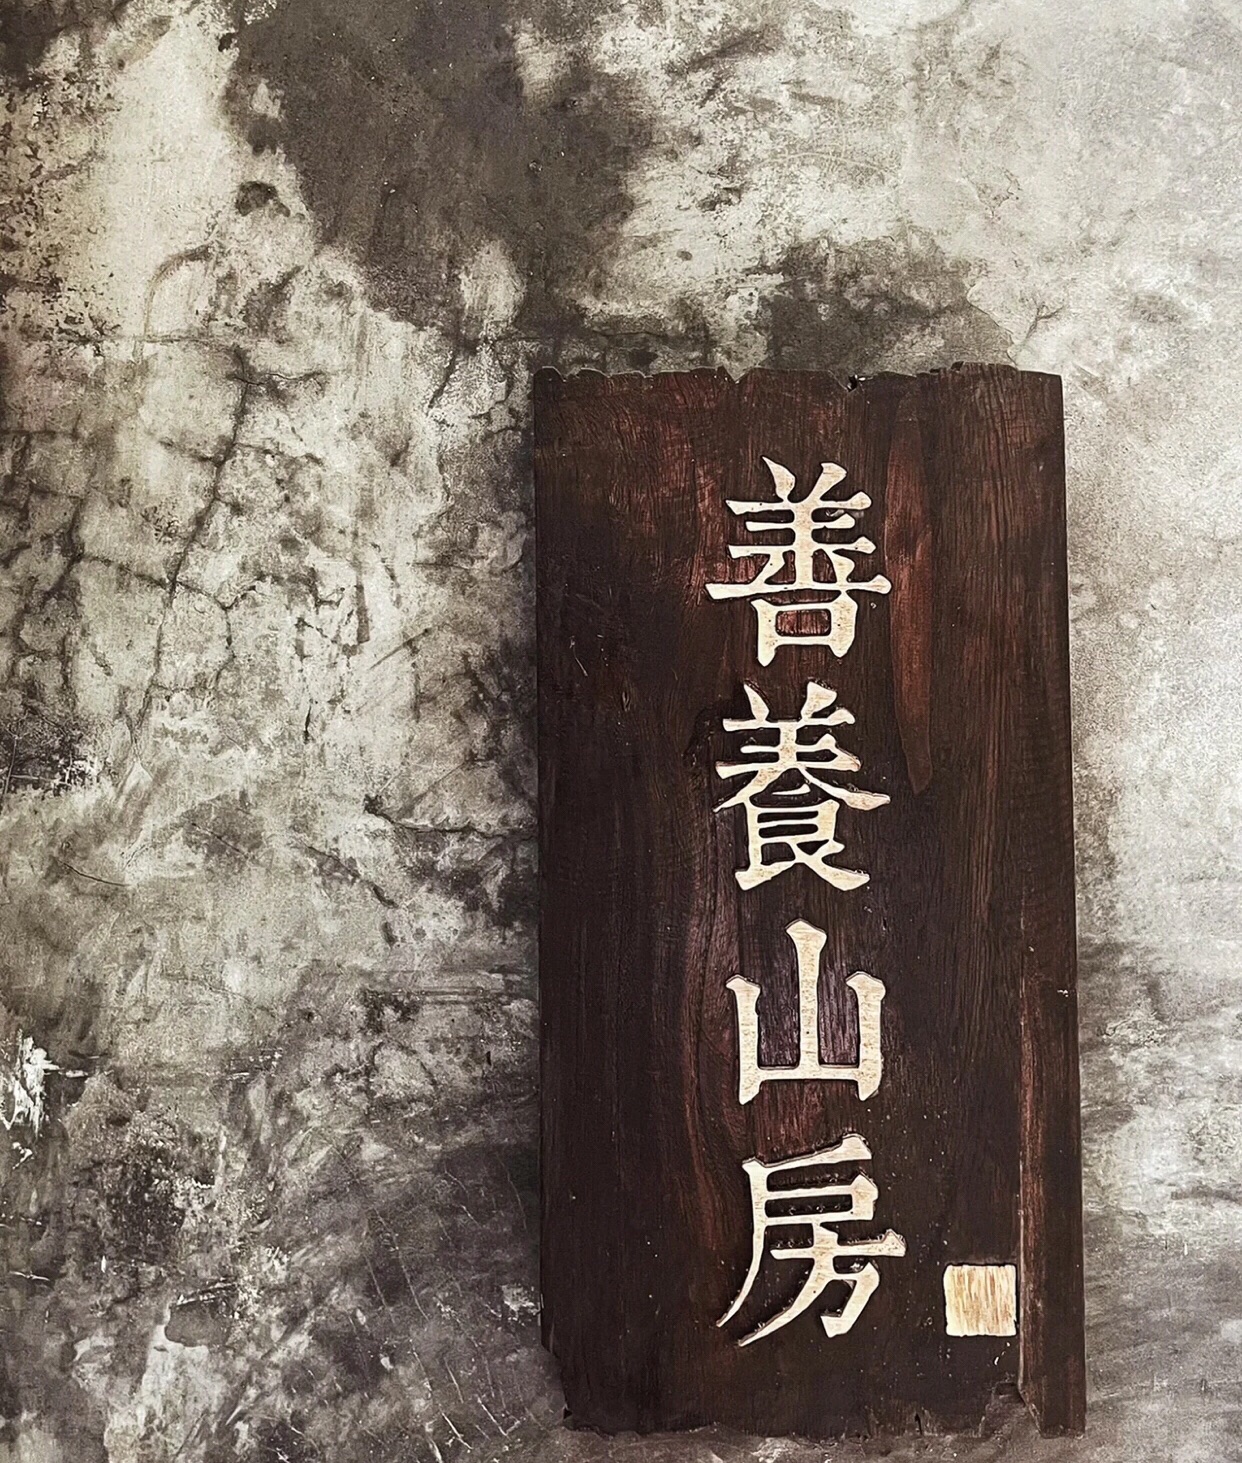 善養山房